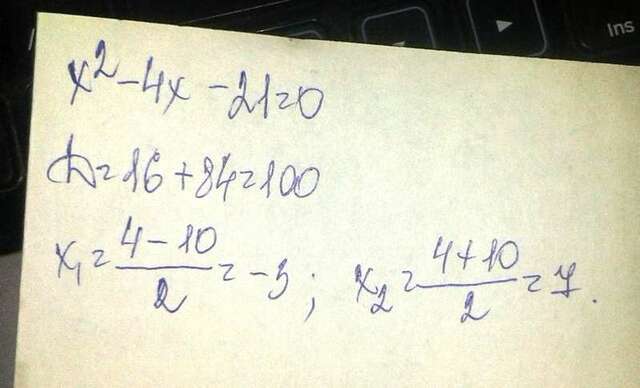 Ins
x² - 4x - 21 = 0
D = 16 + 84 = 100
x₁ = (4 - 10)/2 = -3; x₂ = (4 + 10)/2 = 7.